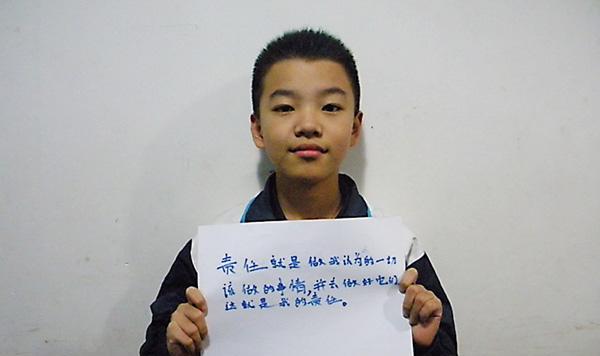 责任就是做我认为的一切
该做的事情,并去做好它们
这就是我的责任。